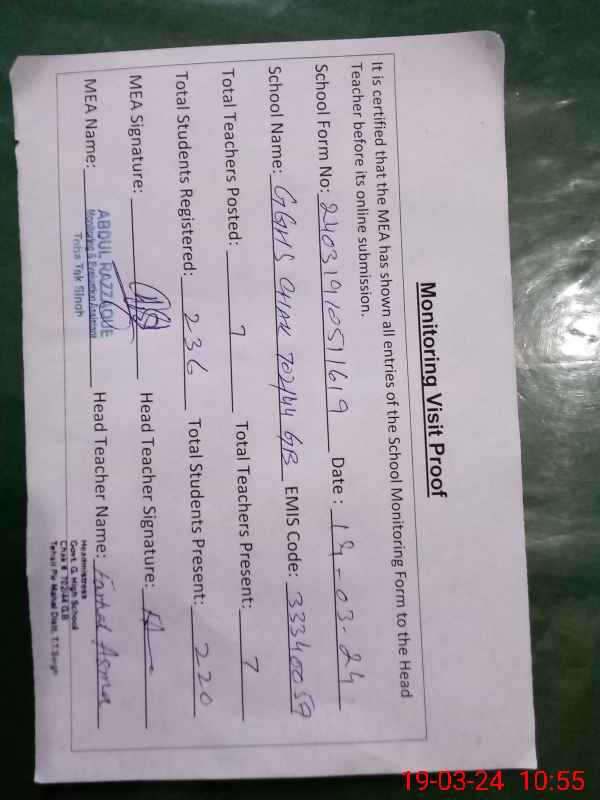 Monitoring Visit Proof
It is certified that the MEA has shown all entries of the School Monitoring Form to the Head
Teacher before its online submission.
School Form No: 24031910511619 Date: 19-03-24
School Name: GGHS CHAK 702/44 GB EMIS Code: 33340059
Total Teachers Posted: 7 Total Teachers Present: 7
Total Students Registered: 236 Total Students Present: 220
MEA Signature: Head Teacher Signature:
MEA Name: ABDUL RAZZAQUE Head Teacher Name: Farhat Asma
Monitoring & Evaluation Assistant
Toba Tek Singh
Headmistress
Govt. G. High School
Chak # 702/44 G.B
Tehsil Pir Mahal Distt. T.T.Singh
19-03-24 10:55